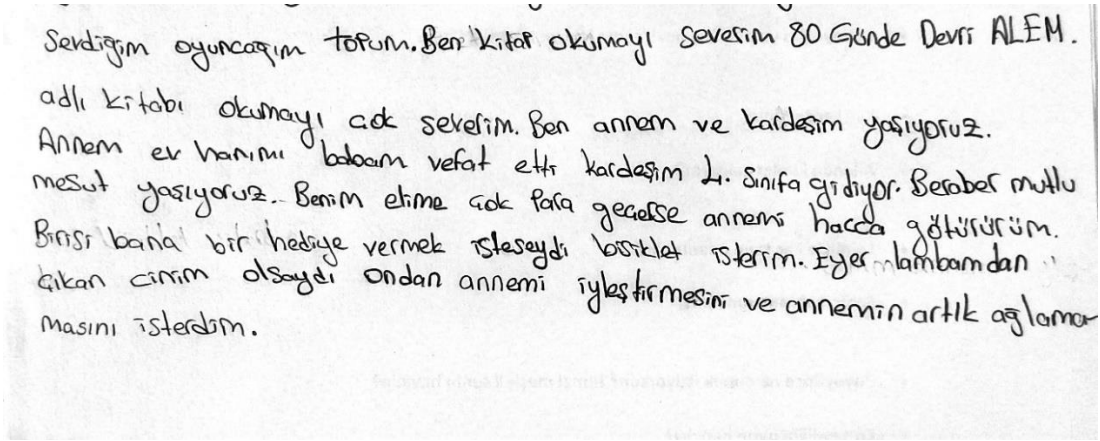 Sevdiğim oyuncağım topum. Ben kitap okumayı severim 80 Günde Devri ALEM.
adlı kitabı okumayı çok severim. Ben annem ve kardeşim yaşıyoruz.
Annem ev hanımı babam vefat etti kardeşim 4. sınıfa gidiyor. Beraber mutlu
mesut yaşıyoruz. Benim elime çok para geçerse annemi hacca götürürüm.
Birisi bana bir hediye vermek isteseydi bisiklet isterim. Eyer lambamdan
çıkan cinim olsaydı ondan annemi iyleştirmesini ve annemin artık ağlama
masını isterdim.